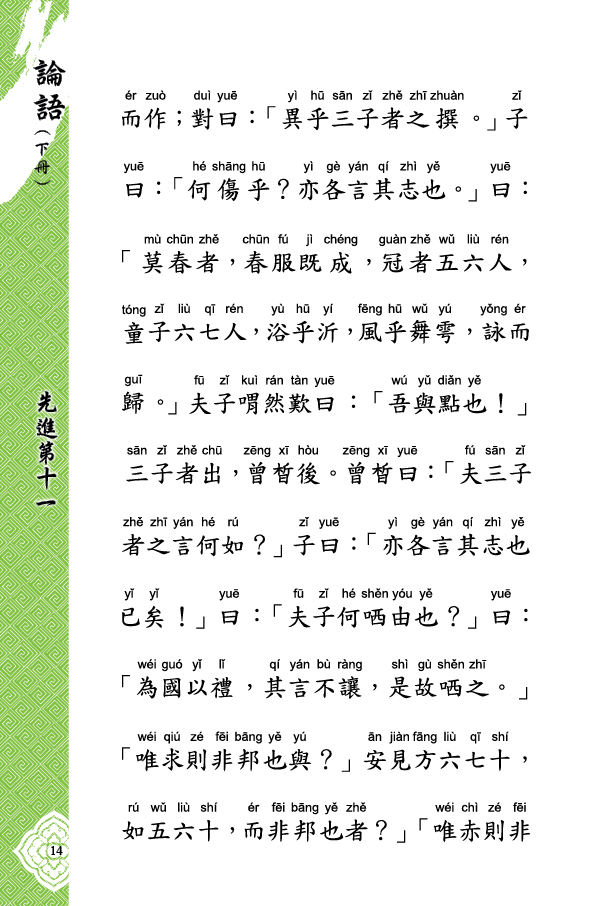 論語(下冊)
先進第十一
14
ér zuò duì yuē yì hū sān zǐ zhě zhī zhuàn zǐ
而作；對曰：「異乎三子者之撰。」子
yuē hé shāng hū yì gè yán qí zhì yě yuē
曰：「何傷乎？亦各言其志也。」曰：
mù chūn zhě chūn fú jì chéng guàn zhě wǔ liù rén
「莫春者，春服既成，冠者五六人，
tóng zǐ liù qī rén yù hū yí fēng hū wǔ yú yǒng ér
童子六七人，浴乎沂，風乎舞雩，詠而
guī fū zǐ kuì rán tàn yuē wú yǔ diǎn yě
歸。」夫子喟然歎曰：「吾與點也！」
sān zǐ zhě chū zēng xī hòu zēng xī yuē fú sān zǐ
三子者出，曾皙後。曾皙曰：「夫三子
zhě zhī yán hé rú zǐ yuē yì gè yán qí zhì yě
者之言何如？」子曰：「亦各言其志也
yǐ yǐ yuē fū zǐ hé shěn yóu yě yuē
已矣！」曰：「夫子何哂由也？」曰：
wéi guó yǐ lǐ qí yán bù ràng shì gù shěn zhī
「為國以禮，其言不讓，是故哂之。」
wéi qiú zé fēi bāng yě yú ān jiàn fāng liù qī shí
「唯求則非邦也與？」安見方六七十，
rú wǔ liù shí ér fēi bāng yě zhě wéi chì zé fēi
如五六十，而非邦也者？」「唯赤則非